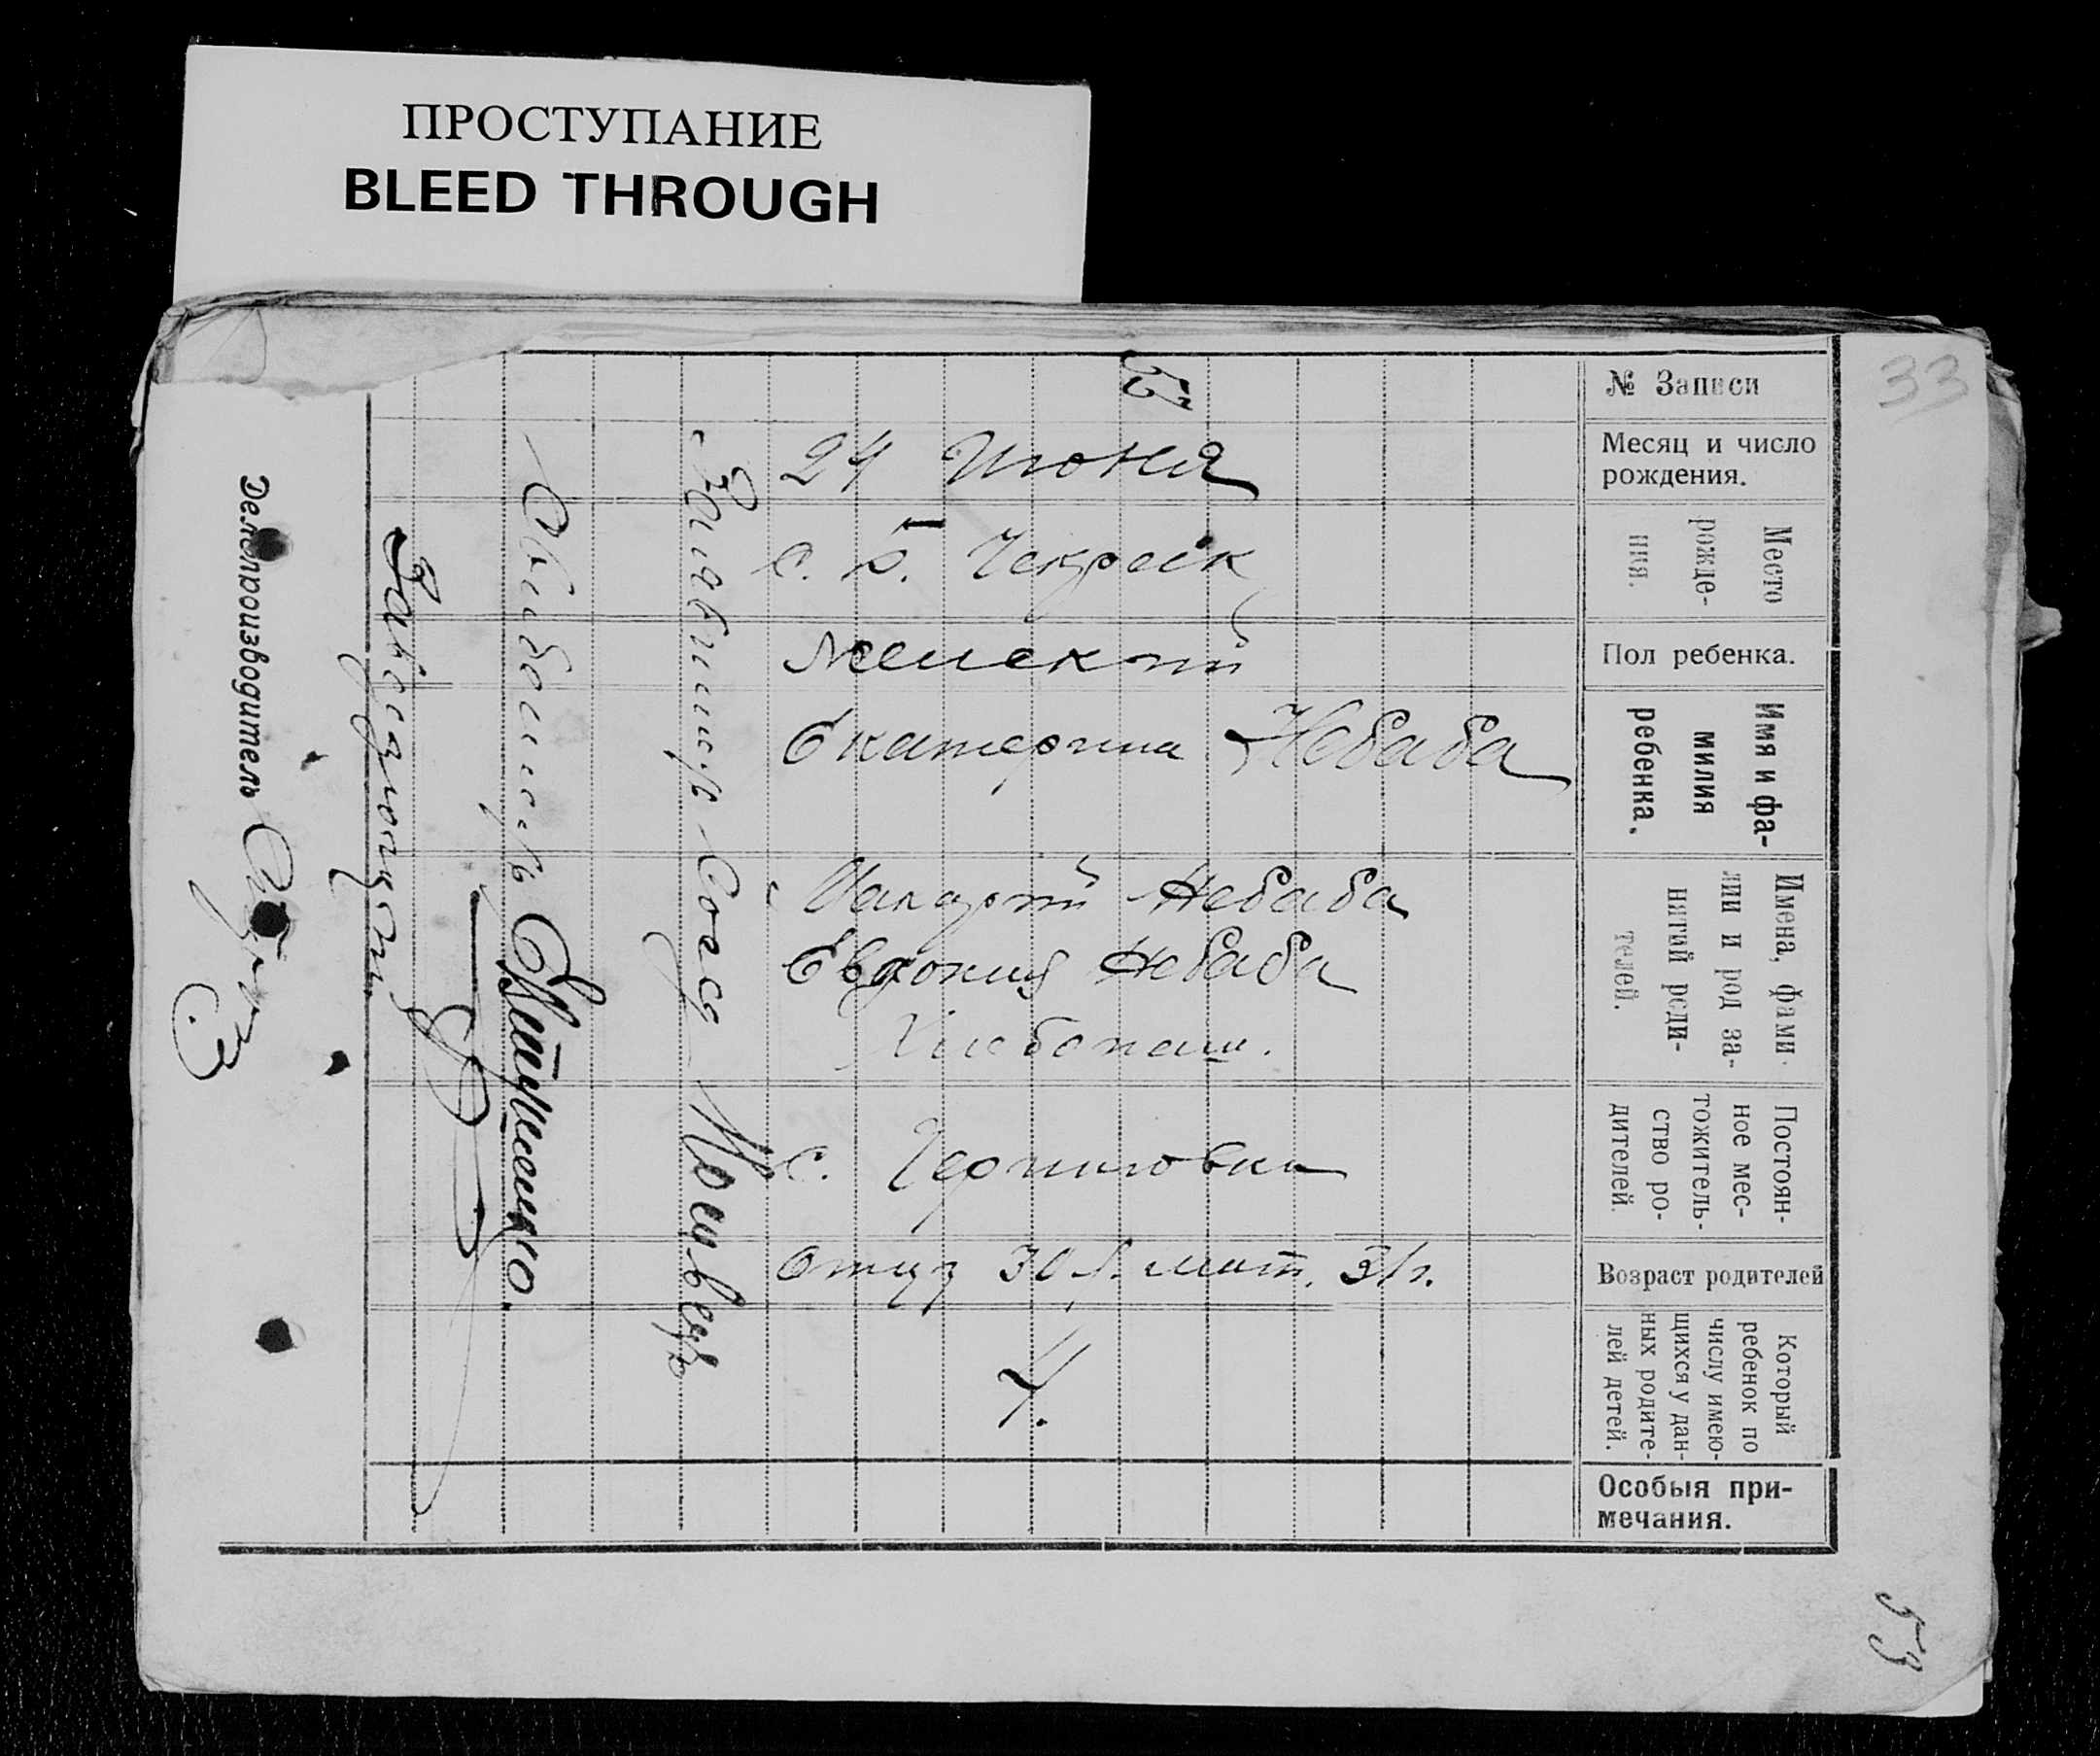 ПРОСТУПАНИЕ
BLEED THROUGH
33
№ Записи
53
Месяц и число
рождения.
24 Июня
Место
рожде-
ния.
с. Б.
Пол ребенка.
женский
Имя и фа-
милия
ребенка.
Екатерина Небаба
Имена, фами-
лии и род за-
нятий роди-
телей.
Макарий Небаба
Евдокия Небаба
Хлебопаш.
Постоян-
ное мес-
тожитель-
ство ро-
дителей
с. Черниговки
Возраст родителей
Отцу 30 л. мат. 31 г.
Который
ребенок по
числу имею-
щихся у дан-
ных родите-
лей детей.
4.
Особыя при-
мечания.
Заведующий
Делопроизводитель
53